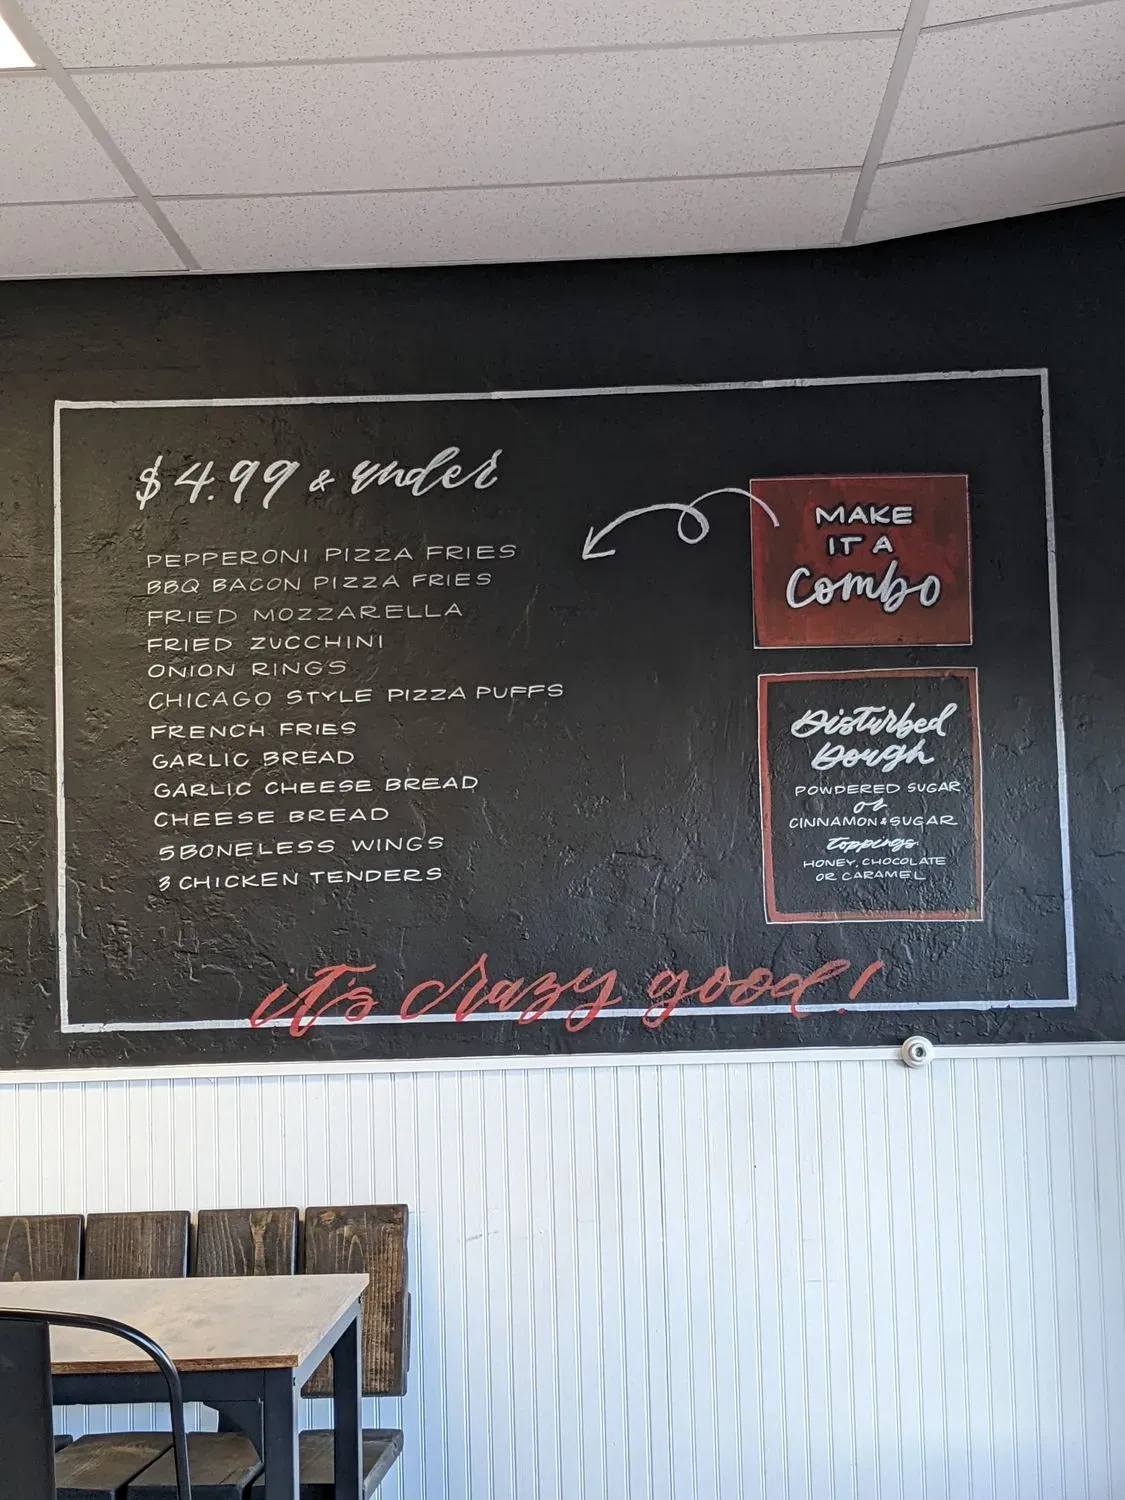 $4.99 & under
PEPPERONI PIZZA FRIES
BBQ BACON PIZZA FRIES
FRIED MOZZARELLA
FRIED ZUCCHINI
ONION RINGS
CHICAGO STYLE PIZZA PUFFS
FRENCH FRIES
GARLIC BREAD
GARLIC CHEESE BREAD
CHEESE BREAD
5 BONELESS WINGS
3 CHICKEN TENDERS
MAKE
IT A
Combo
Disturbed
Dough
POWDERED SUGAR
or
CINNAMON & SUGAR
toppings
HONEY, CHOCOLATE
OR CARAMEL
it's crazy good!